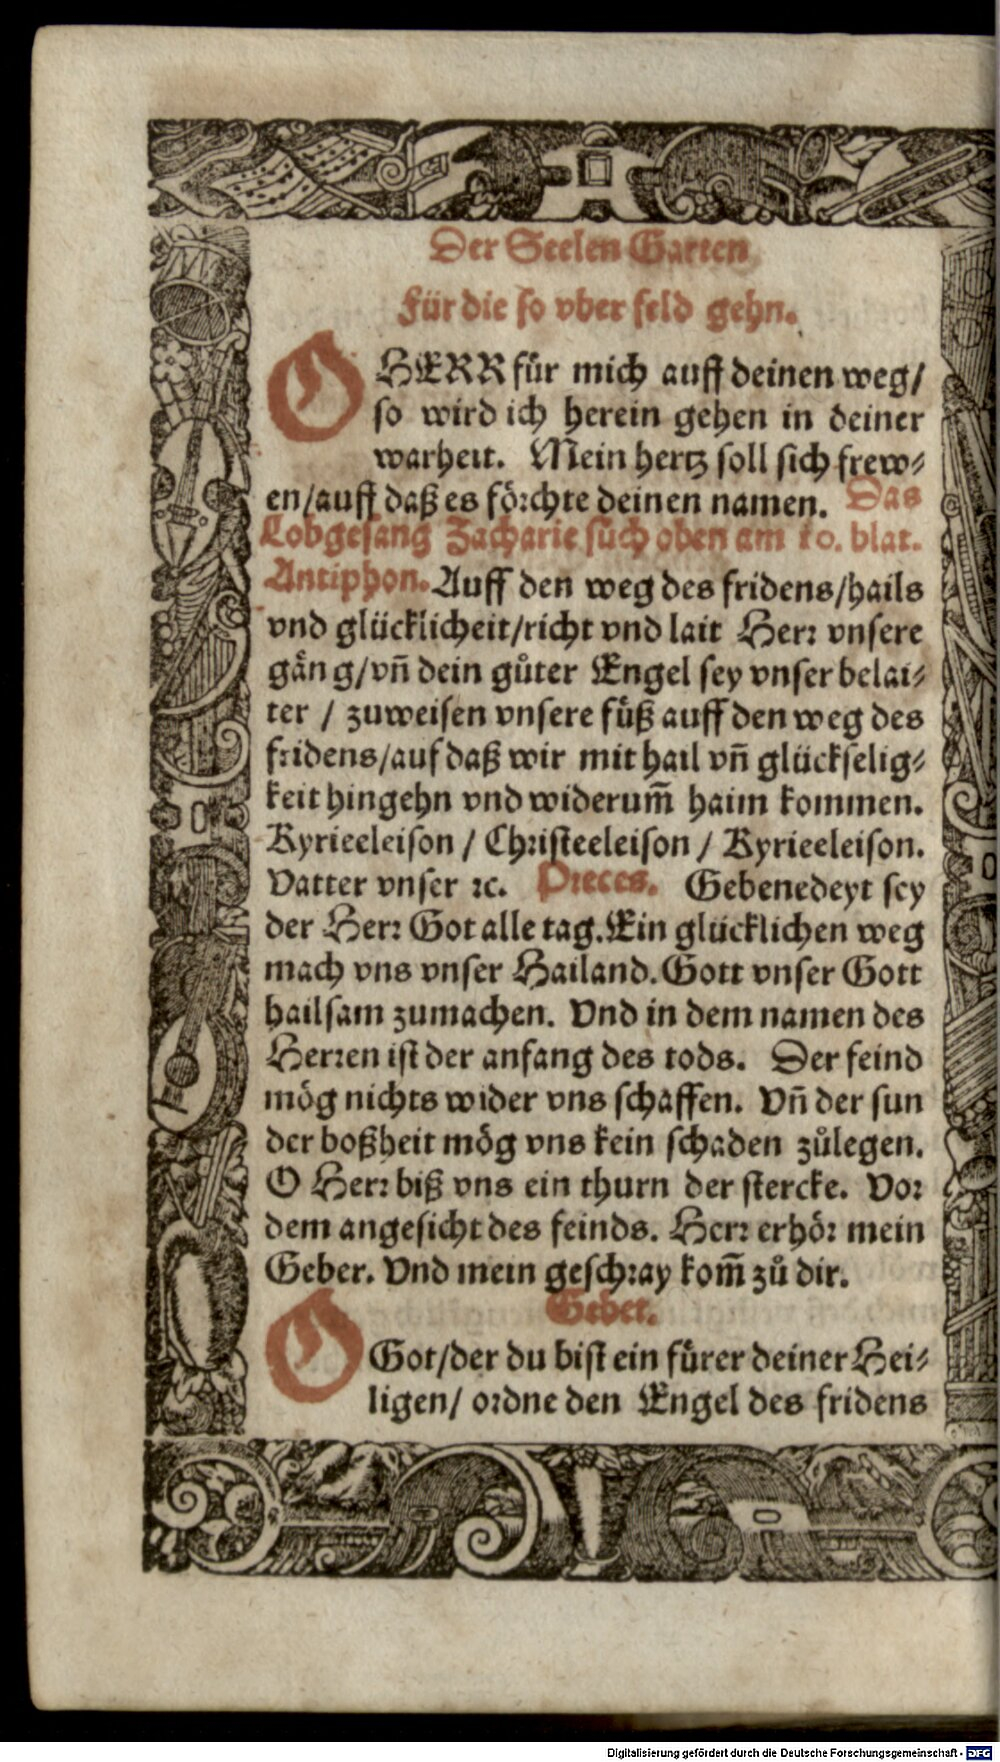 Der Seelen Garten
Für die so vber feld gehn.
O HERR für mich auff deinen weg/
so wird ich herein gehen in deiner
warheit. Mein hertz soll sich frew⸗
en/auff daß es förchte deinen namen. Das
Lobgesang Zacharie sůch oben am 10. blat.
Antiphon. Auff den weg des fridens/hails
vnd glücklicheit/richt vnd lait Herr vnsere
gäng/vñ dein gůter Engel sey vnser belai⸗
ter / zuweisen vnsere füß auff den weg des
fridens/auf daß wir mit hail vñ glückselig⸗
keit hingehn vnd widerum̃ haim kommen.
Kyrieeleison / Christeeleison / Kyrieeleison.
Vatter vnser ꝛc. Preces. Gebenedeyt sey
der Herr Got alle tag. Ein glücklichen weg
mach vns vnser Hailand. Gott vnser Gott
hailsam zumachen. Vnd in dem namen des
Herren ist der anfang des tods. Der feind
mög nichts wider vns schaffen. Vñ der sun
der boßheit mög vns kein schaden zůlegen.
O Herr biß vns ein thurn der stercke. Vor
dem angesicht des feinds. Herr erhör mein
Geber. Vnd mein geschray kom̃ zů dir.
Gebet.
O Got/der du bist ein fürer deiner Hei⸗
ligen/ ordne den Engel des fridens
Digitalisierung gefördert durch die Deutsche Forschungsgemeinschaft - DFG